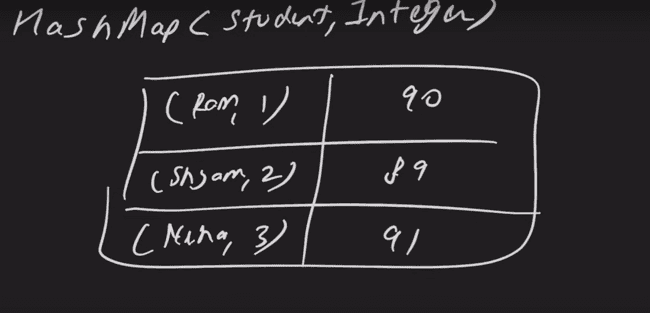 HashMap ( Student, Integer )
( Ram, 1 ) 90
( Shyam, 2 ) 89
( Neha, 3 ) 91